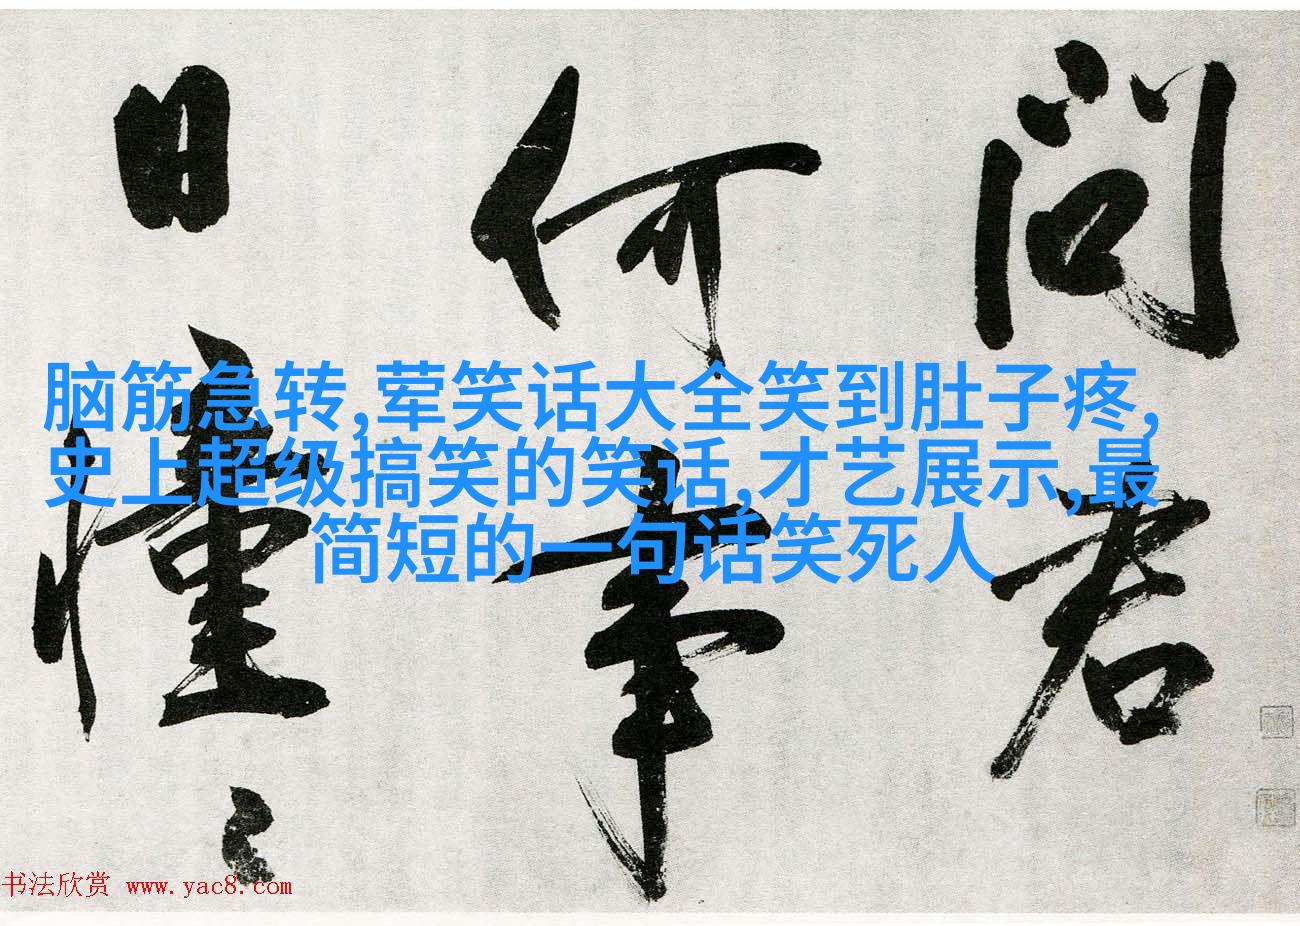 问君
何事
日憧〻
脑筋急转,荤笑话大全笑到肚子疼,
史上超级搞笑的笑话,才艺展示,最
简短的一句话笑死人
书法欣赏 www.yac8.com